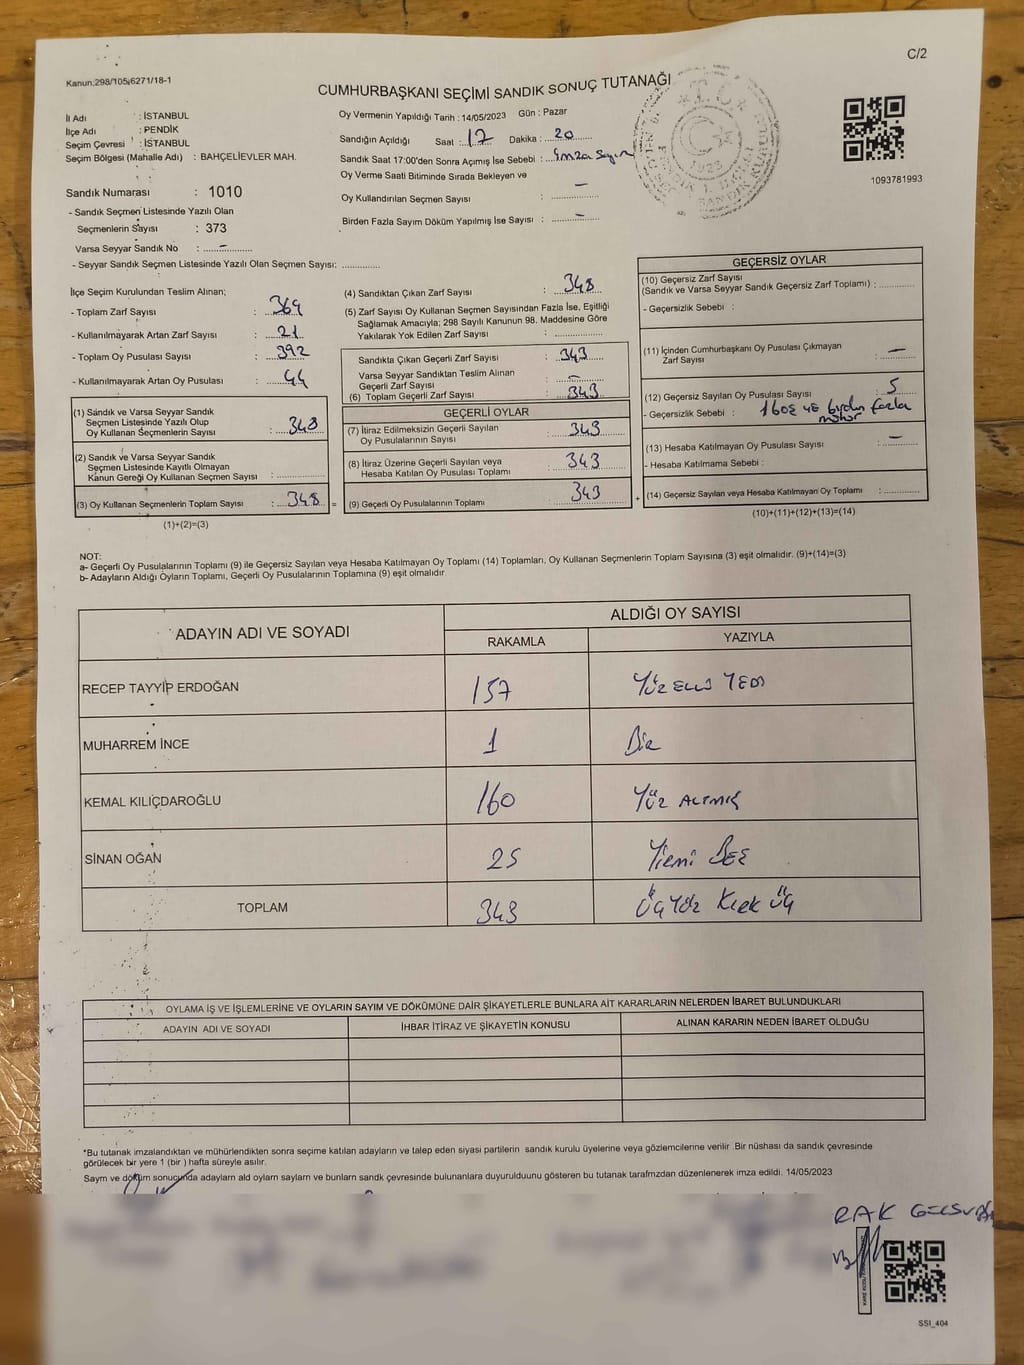 C/2
Kanun:298/105;6271/18-1
CUMHURBAŞKANI SEÇİMİ SANDIK SONUÇ TUTANAĞI
İl Adı : İSTANBUL
İlçe Adı : PENDİK
Seçim Çevresi : İSTANBUL
Seçim Bölgesi (Mahalle Adı) : BAHÇELİEVLER MAH.
Oy Vermenin Yapıldığı Tarih : 14/05/2023 Gün : Pazar
Sandığın Açıldığı Saat : 17 Dakika : 20
Sandık Saat 17:00'den Sonra Açımış İse Sebebi : İmza Sayım
Oy Verme Saati Bitiminde Sırada Bekleyen ve
Oy Kullandırılan Seçmen Sayısı : —
Birden Fazla Sayım Döküm Yapılmış İse Sayısı : —
1093781993
Sandık Numarası : 1010
- Sandık Seçmen Listesinde Yazılı Olan
Seçmenlerin Sayısı : 373
Varsa Seyyar Sandık No : —
- Seyyar Sandık Seçmen Listesinde Yazılı Olan Seçmen Sayısı:
İlçe Seçim Kurulundan Teslim Alınan;
- Toplam Zarf Sayısı : 369
- Kullanılmayarak Artan Zarf Sayısı : 21
- Toplam Oy Pusulası Sayısı : 392
- Kullanılmayarak Artan Oy Pusulası : 44
(1) Sandık ve Varsa Seyyar Sandık
Seçmen Listesinde Yazılı Olup
Oy Kullanan Seçmenlerin Sayısı : 348
(2) Sandık ve Varsa Seyyar Sandık
Seçmen Listesinde Kayıtlı Olmayan
Kanun Gereği Oy Kullanan Seçmen Sayısı :
(3) Oy Kullanan Seçmenlerin Toplam Sayısı : 348 =
(1)+(2)=(3)
(4) Sandıktan Çıkan Zarf Sayısı : 348
(5) Zarf Sayısı Oy Kullanan Seçmen Sayısından Fazla İse, Eşitliği
Sağlamak Amacıyla; 298 Sayılı Kanunun 98. Maddesine Göre
Yakılarak Yok Edilen Zarf Sayısı :
Sandıkta Çıkan Geçerli Zarf Sayısı : 343
Varsa Seyyar Sandıktan Teslim Alınan
Geçerli Zarf Sayısı : —
(6) Toplam Geçerli Zarf Sayısı : 343
GEÇERLİ OYLAR
(7) İtiraz Edilmeksizin Geçerli Sayılan
Oy Pusulalarının Sayısı : 343
(8) İtiraz Üzerine Geçerli Sayılan veya
Hesaba Katılan Oy Pusulası Toplamı : 343
(9) Geçerli Oy Pusulalarının Toplamı : 343 +
GEÇERSİZ OYLAR
(10) Geçersiz Zarf Sayısı
(Sandık ve Varsa Seyyar Sandık Geçersiz Zarf Toplamı) :
- Geçersizlik Sebebi :
(11) İçinden Cumhurbaşkanı Oy Pusulası Çıkmayan
Zarf Sayısı : —
(12) Geçersiz Sayılan Oy Pusulası Sayısı : 5
- Geçersizlik Sebebi : 1 boş 4E birden fazla
mühür
(13) Hesaba Katılmayan Oy Pusulası Sayısı : —
- Hesaba Katılmama Sebebi :
(14) Geçersiz Sayılan veya Hesaba Katılmayan Oy Toplamı :
(10)+(11)+(12)+(13)=(14)
NOT:
a- Geçerli Oy Pusulalarının Toplamı (9) ile Geçersiz Sayılan veya Hesaba Katılmayan Oy Toplamı (14) Toplamları, Oy Kullanan Seçmenlerin Toplam Sayısına (3) eşit olmalıdır. (9)+(14)=(3)
b- Adayların Aldığı Oyların Toplamı, Geçerli Oy Pusulalarının Toplamına (9) eşit olmalıdır
ADAYIN ADI VE SOYADI
ALDIĞI OY SAYISI
RAKAMLA YAZIYLA
RECEP TAYYİP ERDOĞAN 157 Yüz Elli Yedi
MUHARREM İNCE 1 Bir
KEMAL KILIÇDAROĞLU 160 Yüz Altmış
SİNAN OĞAN 25 Yirmi Beş
TOPLAM 343 Üç Yüz Kırk Üç
OYLAMA İŞ VE İŞLEMLERİNE VE OYLARIN SAYIM VE DÖKÜMÜNE DAİR ŞİKAYETLERLE BUNLARA AİT KARARLARIN NELERDEN İBARET BULUNDUKLARI
ADAYIN ADI VE SOYADI İHBAR İTİRAZ VE ŞİKAYETİN KONUSU ALINAN KARARIN NEDEN İBARET OLDUĞU
*Bu tutanak imzalandıktan ve mühürlendikten sonra seçime katılan adayların ve talep eden siyasi partilerin sandık kurulu üyelerine veya gözlemcilerine verilir. Bir nüshası da sandık çevresinde
görülecek bir yere 1 (bir) hafta süreyle asılır.
Sayım ve döküm sonucunda adayların ald oyların sayıların ve bunların sandık çevresinde bulunanlara duyurulduunu gösteren bu tutanak tarafmzdan düzenlenerek imza edildi. 14/05/2023
SSI_404